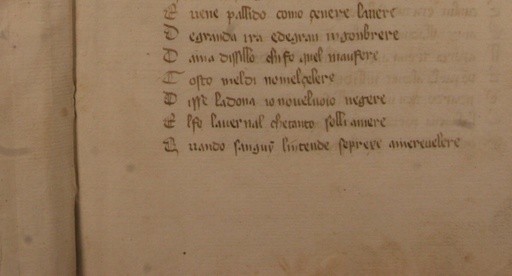 E uene pallido como çenere lauere
D egranda ira edegran ingonbrere
D ama dissillo chifo quel maufere
T osto meldi nomelçelere
D isse ladona io noueluoio negere
E lfo lauernal chetanto solli amere
Q uando sanguyn lintende seprexe amerauelere